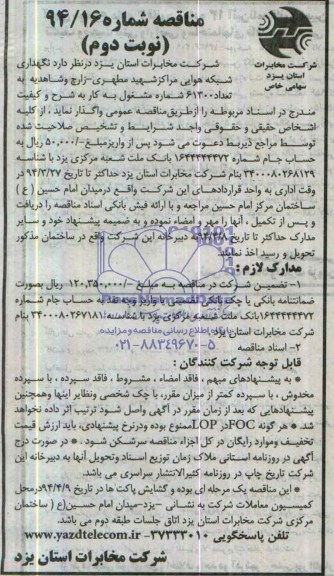 مناقصه شماره ۹۴/۱۶
(نوبت دوم)
شرکت مخابرات
استان یزد
سهامی خاص
شرکت مخابرات استان یزد درنظر دارد نگهداری
شبکه هوایی مراکزشهید مطهری-زارچ وشاهدیه به
تعداد ۶۱۳۰۰ شماره مشغول به کار به شرح و کیفیت
مندرج در اسناد مربوطه را ازطریق مناقصه عمومی واگذار نماید ، از کلیه
اشخاص حقیقی و حقوقی واجد شرایط و تشخیص صلاحیت شده
توسط مراجع ذیربط دعوت می شود پس از واریزمبلغ -/۵۰,۰۰۰ ریال به
حساب جام شماره ۱۶۴۴۴۴۴۴۷۲ بانک ملت شعبه مرکزی یزد با شناسه
۳۴۰۰۰۸۰۲۶۸۱۲۹ بنام شرکت مخابرات استان یزد حداکثر تا تاریخ ۹۴/۳/۲۷ تا
وقت اداری به واحد قراردادهای این شرکت واقع درمیدان امام حسین ( ع )
ساختمان مرکز امام حسین مراجعه و با ارائه فیش بانکی اسناد مناقصه را دریافت
و پس از تکمیل ، آنها را مهر و امضاء نموده و به ضمیمه پیشنهاد خود و سایر
مدارک حداکثر تا تاریخ به دبیرخانه این شرکت واقع در ساختمان مذکور
تحویل و رسید اخذ نمایند.
مدارک لازم :
۱- تضمین شرکت در مناقصه به مبلغ -/۱۲۰,۳۵۰,۰۰۰ ریال بصورت
ضمانتنامه بانکی یا چک بانکی تضمینی یا واریز وجه نقد به حساب جام شماره
۱۶۴۴۴۴۴۴۷۲ بانک ملت شعبه مرکزی یزد با شناسه ۳۴۰۰۰۸۰۲۶۷۱۸۱ بنام
شرکت مخابرات استان یزد
پایگاه اطلاع رسانی مناقصه و مزایده
۲- اسناد مناقصه
۰۲۱-۸۸۳۴۹۶۷۰-۵
قابل توجه شرکت کنندگان :
* به پیشنهادهای مبهم ، فاقد امضاء ، مشروط ، فاقد سپرده ، با سپرده
مخدوش ، با سپرده کمتر از میزان مقرر، با چک شخصی ونظایر اینها وهمچنین
پیشنهادهایی که بعد از زمان مقرر در آگهی واصل شود ترتیب اثر داده نخواهد
شد. * هر گونه FOC در LOP ممنوع بوده ودرنرخ پیشنهادی، باید ارزش قیمت
تخفیف وموارد رایگان در کل اجزاء مناقصه سرشکن شود . * در صورت درج
آگهی در روزنامه استانی ملاک زمان توزیع اسناد وتحویل آنها به دبیرخانه این
شرکت تاریخ چاپ در روزنامه کثیرالانتشار سراسری می باشد.
* این مناقصه یک مرحله ای بوده و گشایش پاکت ها در تاریخ ۹۴/۴/۹ درمحل
کمیسیون معاملات شرکت به نشانی -یزد-میدان امام حسین(ع ( ساختمان
مرکزی شرکت مخابرات استان یزد اتاق جلسات طبقه دوم می باشد.
تلفن پاسخگویی ۳۷۲۳۳۰۱۰-www.yazdtelecom.ir
شرکت مخابرات استان یزد